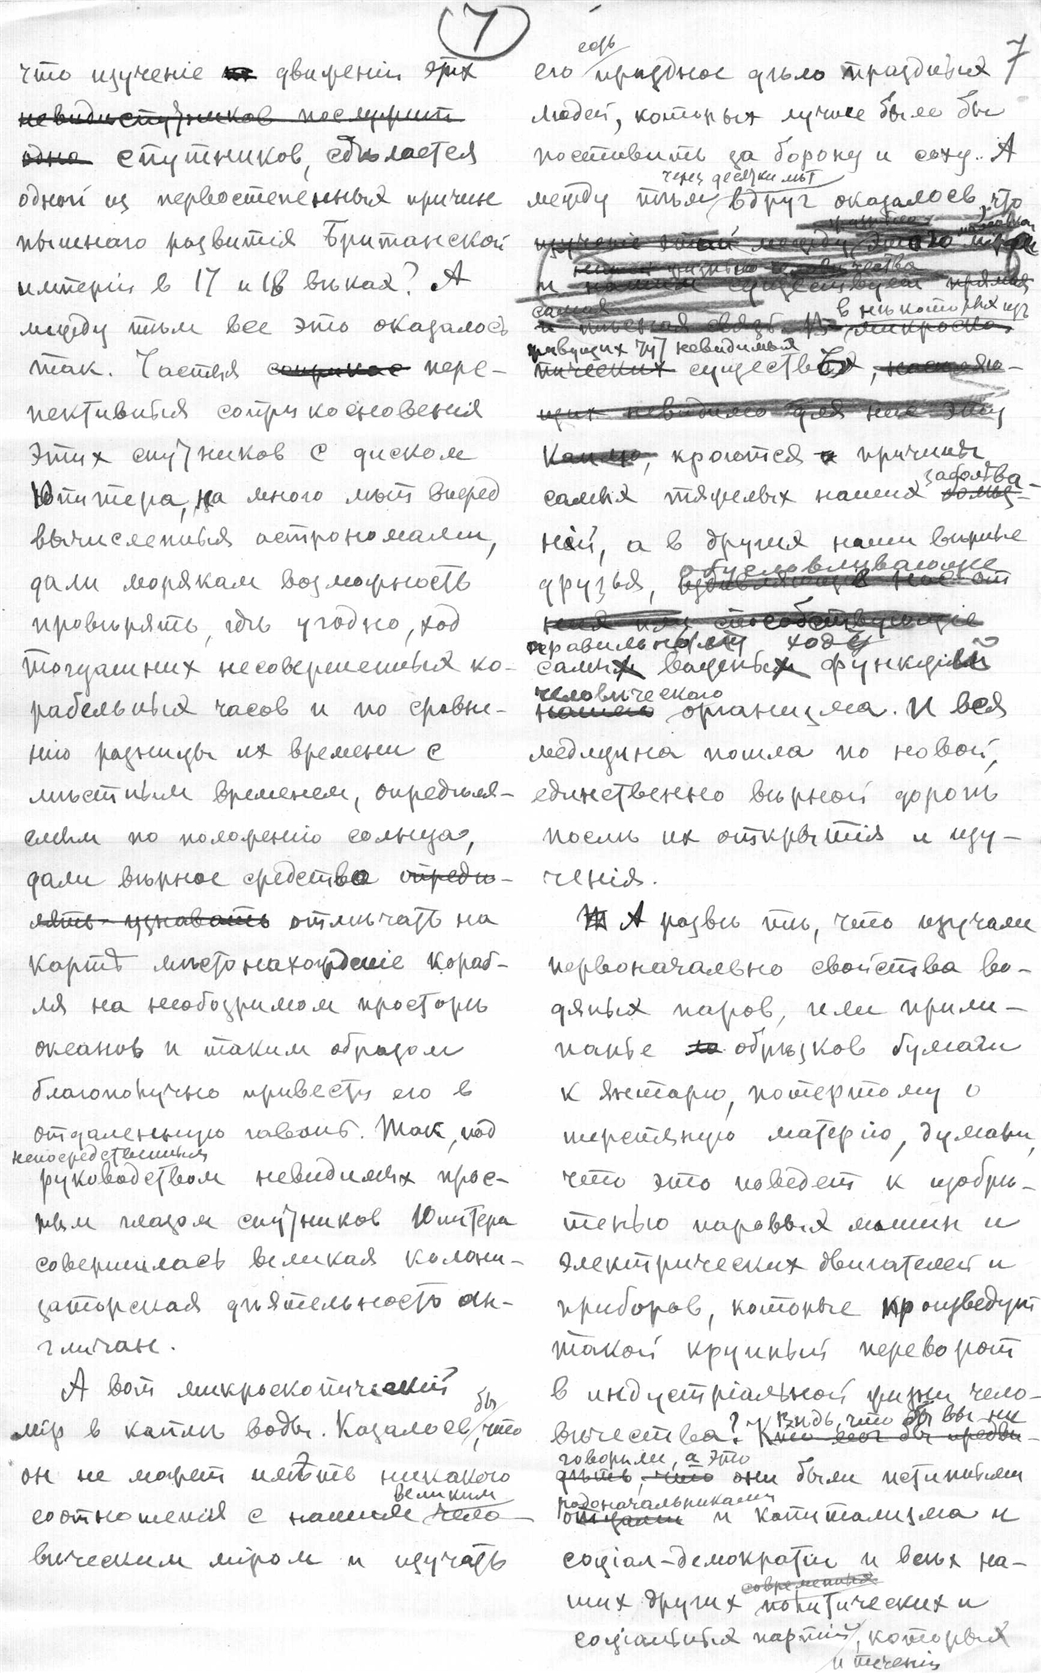 7
что изученіе движеній этих
невидиспутников послужит
одно спутников, сдѣлается
одной из первостепенных причин
пышнаго развитія Британской
имперіи в 17 и 18 вѣках? А
между тѣм все это оказалось
так. Частыя соприкос пере-
пективныя соприкосновенія
этих спутников с диском
Юпитера, на много лѣт вперед
вычисленныя астрономами,
дали морякам возможность
провѣрять, гдѣ угодно, ход
тогдашних несовершенных ко-
рабельных часов и по сравне-
нію разницы их времени с
мѣстным временем, опредѣля-
емым по положенію солнца,
дали вѣрное средство опредѣ-
лять узнавать отмѣчать на
картѣ мѣстонахожденіе кораб-
ля на необозримом просторѣ
океанов и таким образом
благополучно привести его в
отдаленную гавань. Так, под
непосредственным
руководством невидимых прос-
тым глазом спутников Юпитера
совершилась великая колони-
заторская дѣятельность ан-
гличан.
А вот микроскопическій
мір в каплѣ воды. Казалось бы, что
он не может имѣть никакого
соотношенія с нашим великим чело-
вѣческим міром и изучать
7
его есть праздное дѣло праздных
людей, которых лучше было бы
поставить за борону и соху.. А
между тѣм через десятки лѣт вдруг оказалось, что
самая
и тѣсная связь. В микроско-
в нѣкоторых из
живущих тут невидимых
пических существах,
невидимо для них эту
каплю, кроются причины
самых тяжелых наших заболѣва-
ній, а в других наши вѣрные
друзья, обусловливающие
способствующіе
правильному ходу
самых важных функцій
человѣческаго
нашего организма. И вся
медицина пошла по новой,
единственно вѣрной дорогѣ
послѣ их открытія и изу-
ченія.
А развѣ тѣ, что изучали
первоначально свойства во-
дяных паров, или прили-
панье обрѣзков бумаги
к янтарю, потертому о
шерстяную матерію, думали,
что это поведет к изобрѣ-
тенью паровых машин и
электрических двигателей и
приборов, которые произведут
такой крупный переворот
в индустріальной жизни чело-
вѣчества? Вѣдь, что бы вы ни
Кто мог бы предви-
говорили, а это
дѣть, что они были истинными
родоначальниками
отцами и капитализма и
соціал-демократіи и всѣх на-
ших других современных политических и
соціальных партій и теченій, которых